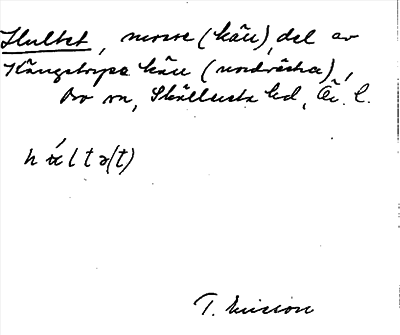 Hultet, mosse (kärr), del av
Kängstorpa kärr (nordvästra),
Bo sn, Skyllersta hd, Ör. l.
h ʉ́ l t ə(t)
T. Ericsson